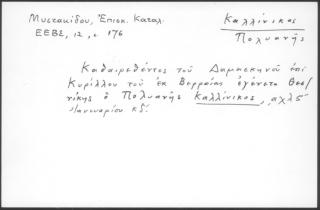 Μυστακίδου, Ἐπισκ. Καταλ.
ΕΕΒΣ, 12, σ 176
Καλλίνικος
Πολυανῆς
Καθαιρεθέντος τοῦ Δαμασκηνοῦ ἐπὶ
Κυρίλλου τοῦ ἐκ Βερροίας ἐγένετο Θεσ/
νίκης ὁ Πολυανῆς Καλλίνικος, αχλς
Ἰανουαρίου κδ.